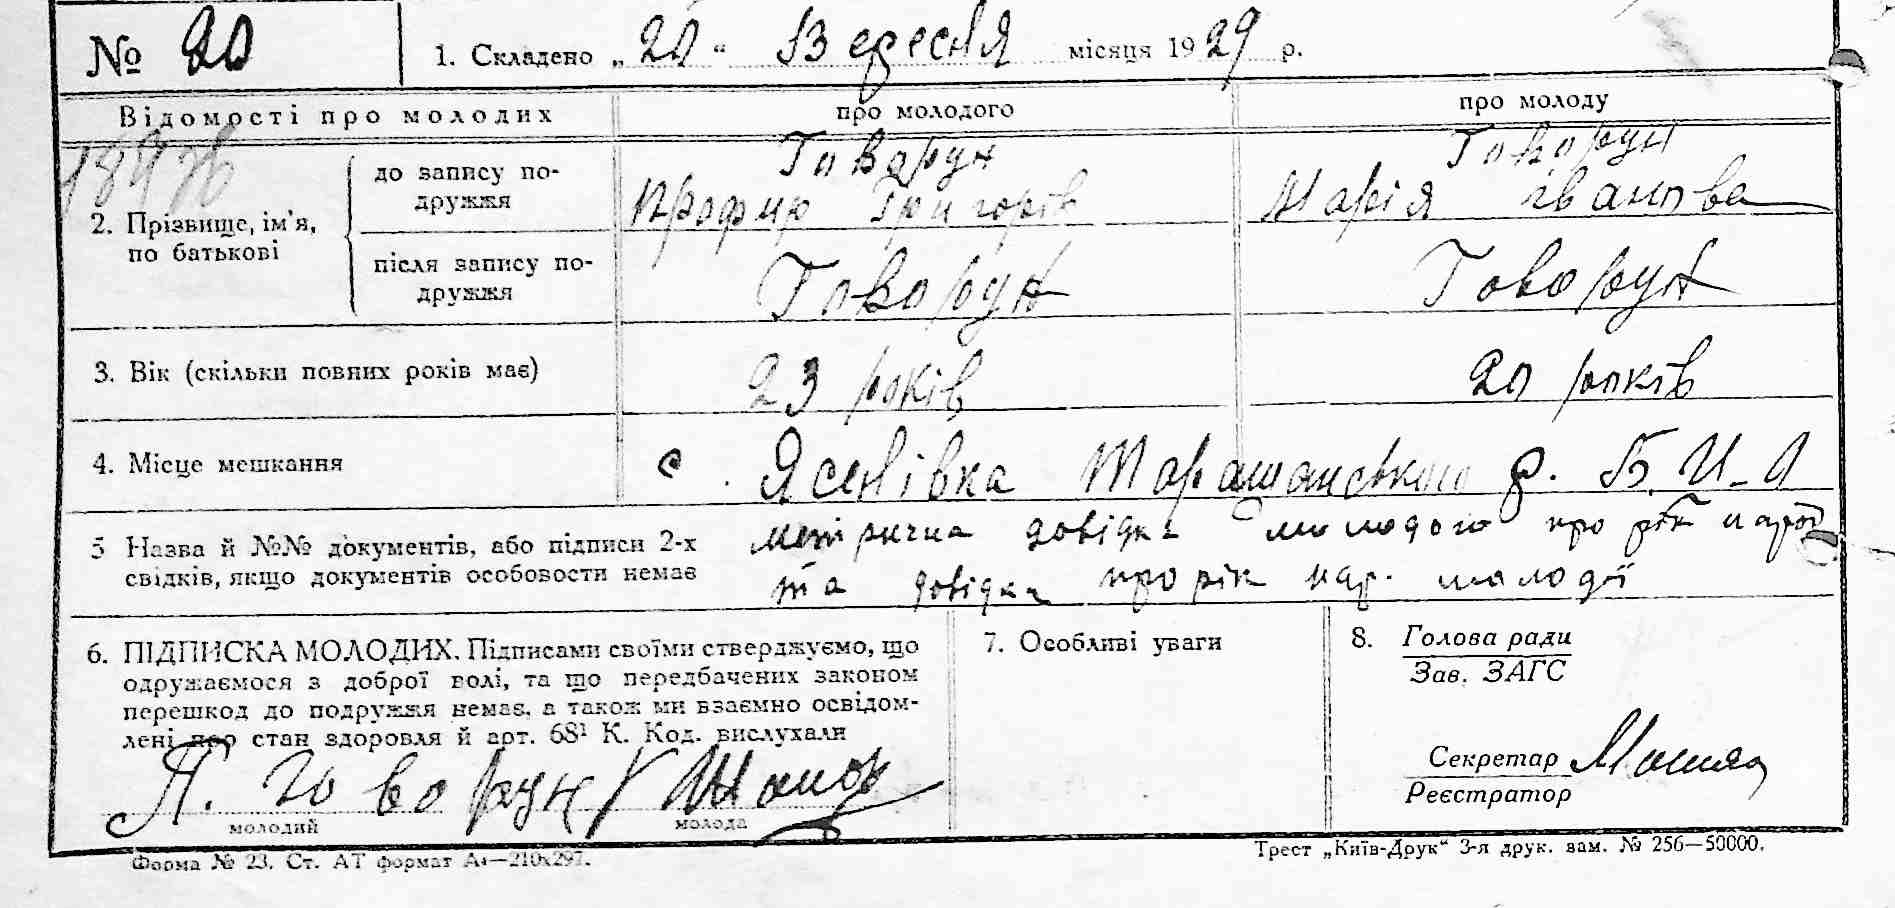 № 20
1. Складено „20“ Вересня місяця 1929 р.
Відомості про молодих
про молодого
про молоду
2. Прізвище, ім'я, по батькові
до запису по-
дружжя
Говорун
Профир Григорів
Говорун
Марія Іванова
після запису по-
дружжя
Говорун
Говорун
3. Вік (скільки повних років має)
23 років
20 років
4. Місце мешкання
с. Ясенівка Таращанського р. Б.Ц-
5 Назва й №№ документів, або підписи 2-х
свідків, якщо документів особовости немає
метрична довідка молодого про рік народ
та довідка про рік нар. молодої
6. ПІДПИСКА МОЛОДИХ. Підписами своїми стверджуємо, що
одружаємося з доброї волі, та що передбачених законом
перешкод до подружжя немає, а також ми взаємно освідом-
лені про стан здоровля й арт. 68¹ К. Код. вислухали
П. Говорун
молодий
молода
7. Особливі уваги
8. Голова ради
Зав. ЗАГС
Секретар
Реєстратор
Форма № 23. Ст. АТ формат А4—210x297.
Трест „Київ-Друк“ 3-я друк. зам. № 256—50000.